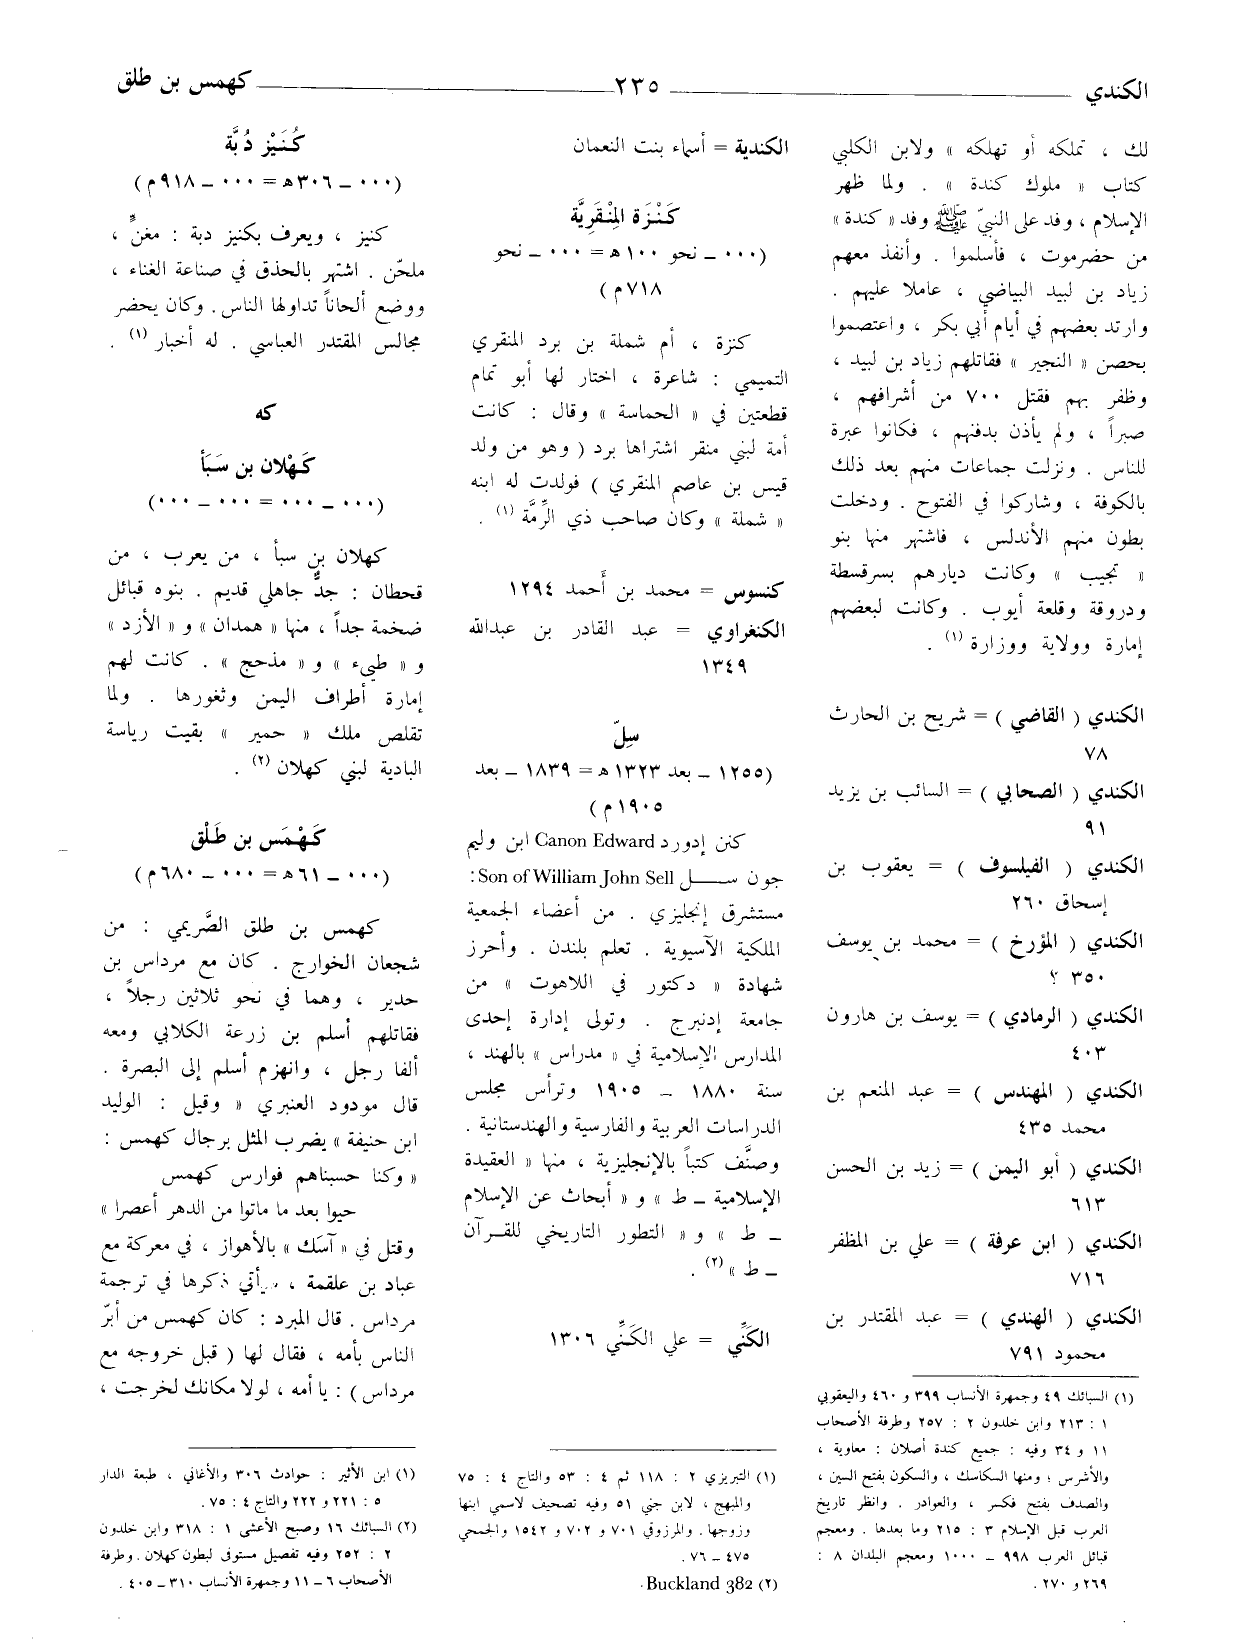 الكندي ٢٣٥ كهمس بن طلق
لك ، تملكه أو تهلكه » ولابن الكلبي
كتاب « ملوك كندة » . ولما ظهر
الإسلام ، وفد على النبيّ ﷺ وفد « كندة »
من حضرموت ، فأسلموا . وأنفذ معهم
زياد بن لبيد البياضي ، عاملا عليهم .
وارتد بعضهم في أيام أبي بكر ، واعتصموا
بحصن « النجير » فقاتلهم زياد بن لبيد ،
وظفر بهم فقتل ٧٠٠ من أشرافهم ،
صبراً ، ولم يأذن بدفنهم ، فكانوا عبرة
للناس . ونزلت جماعات منهم بعد ذلك
بالكوفة ، وشاركوا في الفتوح . ودخلت
بطون منهم الأندلس ، فاشتهر منها بنو
« تجيب » وكانت ديارهم بسرقسطة
ودروقة وقلعة أيوب . وكانت لبعضهم
إمارة وولاية ووزارة (١) .
الكندي ( القاضي ) = شريح بن الحارث
٧٨
الكندي ( الصحابي ) = السائب بن يزيد
٩١
الكندي ( الفيلسوف ) = يعقوب بن
إسحاق ٢٦٠
الكندي ( المؤرخ ) = محمد بن يوسف
٣٥٠ ؟
الكندي ( الرمادي ) = يوسف بن هارون
٤٠٣
الكندي ( المهندس ) = عبد المنعم بن
محمد ٤٣٥
الكندي ( أبو اليمن ) = زيد بن الحسن
٦١٣
الكندي ( ابن عرفة ) = علي بن المظفر
٧١٦
الكندي ( الهندي ) = عبد المقتدر بن
محمود ٧٩١
(١) السبائك ٤٩ وجمهرة الأنساب ٣٩٩ و ٤٦٠ واليعقوبي
١ : ٢١٣ وابن خلدون ٢ : ٢٥٧ وطرفة الأصحاب
١١ و ٣٤ وفيه : جميع كندة أصلان : معاوية ،
والأشرس ؛ ومنها السكاسك ، والسكون بفتح السين ،
والصدف بفتح فكسر ، والعوادر . وانظر تاريخ
العرب قبل الإسلام ٣ : ٢١٥ وما بعدها . ومعجم
قبائل العرب ٩٩٨ – ١٠٠٠ ومعجم البلدان ٨ :
٢٦٩ و ٢٧٠ .
الكندية = أسماء بنت النعمان
كَنْزَة المِنْقَرِيَّة
(٠٠٠ – نحو ١٠٠ هـ = ٠٠٠ – نحو
٧١٨ م )
كنزة ، أم شملة بن برد المنقري
التميمي : شاعرة ، اختار لها أبو تمام
قطعتين في « الحماسة » وقال : كانت
أمة لبني منقر اشتراها برد ( وهو من ولد
قيس بن عاصم المنقري ) فولدت له ابنه
« شملة » وكان صاحب ذي الرِّمَّة (١) .
كنسوس = محمد بن أحمد ١٢٩٤
الكنغراوي = عبد القادر بن عبدالله
١٣٤٩
سِلّ
(١٢٥٥ – بعد ١٣٢٣ هـ = ١٨٣٩ – بعد
١٩٠٥ م )
كنن إدورد Canon Edward ابن وليم
جون سـل Son of William John Sell :
مستشرق إنجليزي . من أعضاء الجمعية
الملكية الآسيوية . تعلم بلندن . وأحرز
شهادة « دكتور في اللاهوت » من
جامعة إدنبرج . وتولى إدارة إحدى
المدارس الإسلامية في « مدراس » بالهند ،
سنة ١٨٨٠ – ١٩٠٥ وترأس مجلس
الدراسات العربية والفارسية والهندستانية .
وصنَّف كتباً بالإنجليزية ، منها « العقيدة
الإسلامية – ط » و « أبحاث عن الإسلام
– ط » و « التطور التاريخي للقرآن
– ط » (٢) .
الكَنِّي = علي الكَنِّي ١٣٠٦
(١) التبريزي ٢ : ١١٨ ثم ٤ : ٥٣ والتاج ٤ : ٧٥
والمبهج ، لابن جني ٥١ وفيه تصحيف لاسمي ابنها
وزوجها . والمرزوقي ٧٠١ و ٧٠٢ و ١٥٤٢ والجمحي
٤٧٥ – ٧٦ .
(٢) Buckland 382 .
كُنَيْز دُبَّة
(٠٠٠ – ٣٠٦ هـ = ٠٠٠ – ٩١٨ م )
كنيز ، ويعرف بكنيز دبة : مغنٍّ ،
ملحّن . اشتهر بالحذق في صناعة الغناء ،
ووضع ألحاناً تداولها الناس . وكان يحضر
مجالس المقتدر العباسي . له أخبار (١) .
كه
كَهْلان بن سَبَأ
(٠٠٠ – ٠٠٠ = ٠٠٠ – ٠٠٠)
كهلان بن سبأ ، من يعرب ، من
قحطان : جدٌّ جاهلي قديم . بنوه قبائل
ضخمة جداً ، منها « همدان » و « الأزد »
و « طيء » و « مذحج » . كانت لهم
إمارة أطراف اليمن وثغورها . ولما
تقلص ملك « حمير » بقيت رياسة
البادية لبني كهلان (٢) .
كَهْمَس بن طَلْق
(٠٠٠ – ٦١ هـ = ٠٠٠ – ٦٨٠ م )
كهمس بن طلق الصَّريمي : من
شجعان الخوارج . كان مع مرداس بن
حدير ، وهما في نحو ثلاثين رجلاً ،
فقاتلهم أسلم بن زرعة الكلابي ومعه
ألفا رجل ، وانهزم أسلم إلى البصرة .
قال مودود العنبري « وقيل : الوليد
ابن حنيفة » يضرب المثل برجال كهمس :
« وكنا حسبناهم فوارس كهمس
حيوا بعد ما ماتوا من الدهر أعصرا »
وقتل في « آسَك » بالأهواز ، في معركة مع
عباد بن علقمة ، سيأتي ذكرها في ترجمة
مرداس . قال المبرد : كان كهمس من أبرّ
الناس بأمه ، فقال لها ( قبل خروجه مع
مرداس ) : يا أمه ، لولا مكانك لخرجت ،
(١) ابن الأثير : حوادث ٣٠٦ والأغاني ، طبعة الدار
٥ : ٢٢١ و ٢٢٢ والتاج ٤ : ٧٥ .
(٢) السبائك ١٦ وصبح الأعشى ١ : ٣١٨ وابن خلدون
٢ : ٢٥٢ وفيه تفصيل مستوفى لبطون كهلان . وطرفة
الأصحاب ٦ – ١١ وجمهرة الأنساب ٣١٠ – ٤٠٥ .